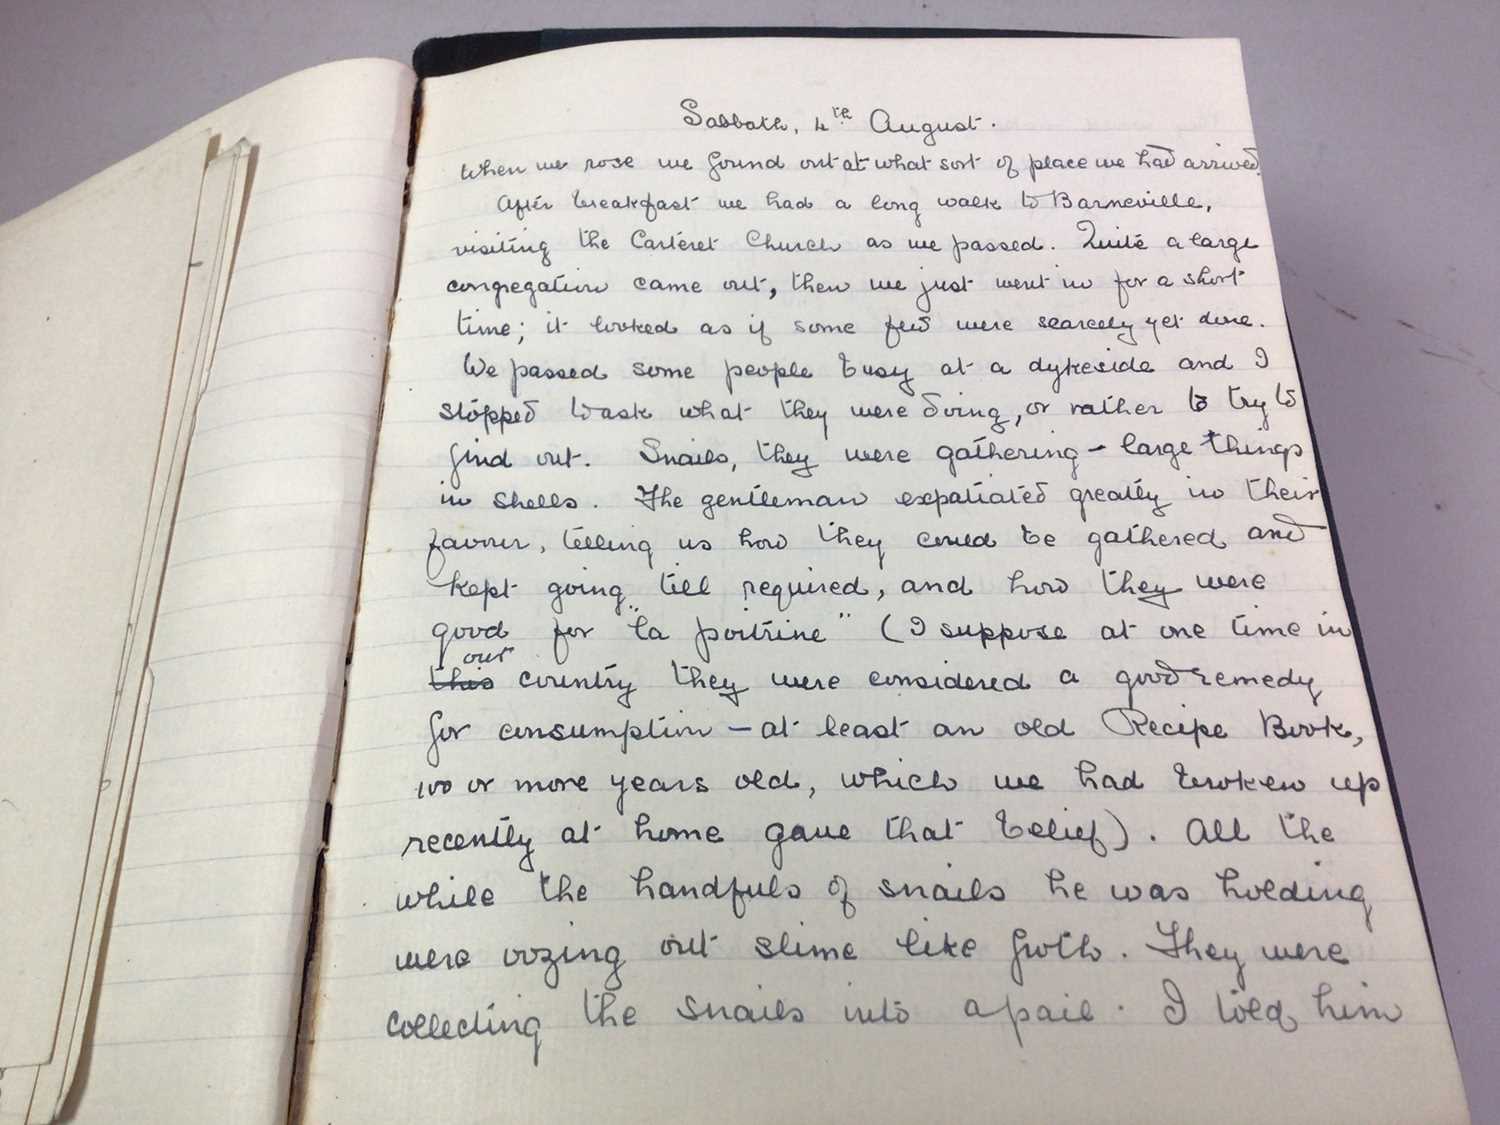 Sabbath, 4th August.
When we rose we found out at what sort of place we had arrived.
After breakfast we had a long walk to Barneville,
visiting the Carteret Church as we passed. Quite a large
congregation came out, then we just went in for a short
time; it looked as if some few were scarcely yet done.
We passed some people busy at a dykeside and I
stopped to ask what they were doing, or rather to try to
find out. Snails, they were gathering - large things
in shells. The gentleman expatiated greatly in their
favour, telling us how they could be gathered and
kept going till required, and how they were
good for "la poitrine" (I suppose at one time in
our
this country they were considered a good remedy
for consumption - at least an old Recipe Book,
100 or more years old, which we had broken up
recently at home gave that belief). All the
while the handfuls of snails he was holding
were oozing out slime like froth. They were
collecting the snails into a pail. I told him